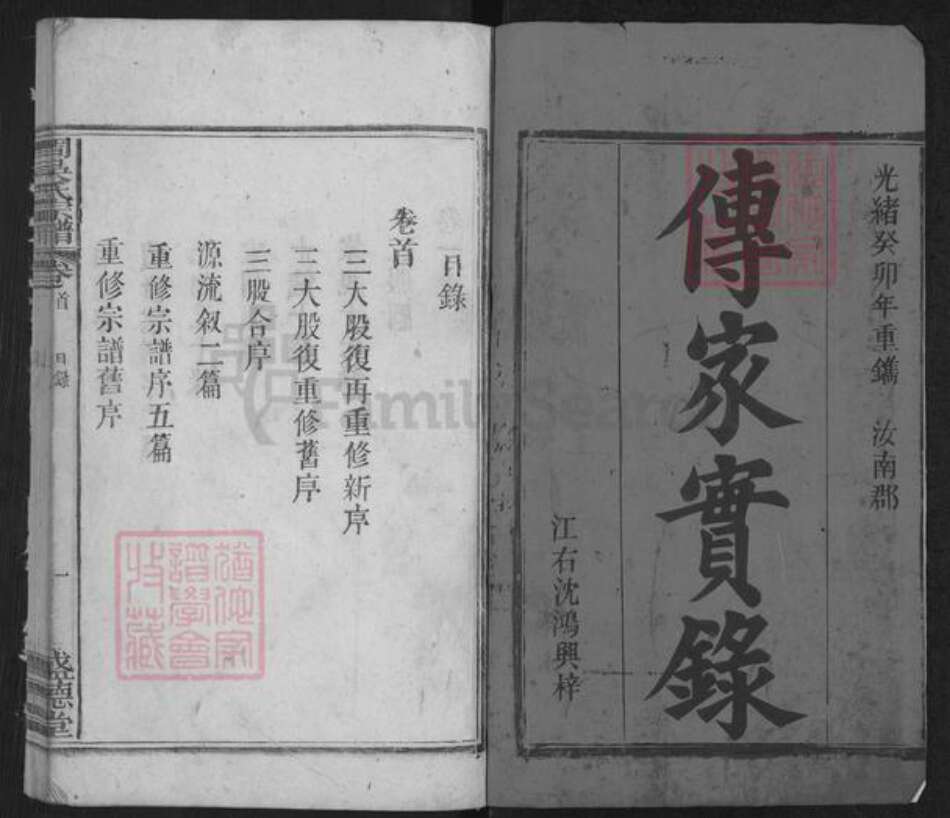 光緒癸卯年重鐫 汝南郡
傳家實錄
江右沈鴻興梓
目錄
卷首
三大股復再重修新序
三大股復重修舊序
三股合序
源流叙二篇
重修宗譜序五篇
重修宗譜舊序
周吳氏宗譜 卷首 目錄 一 盛德堂
猶他家譜學會收藏
FamilySearch